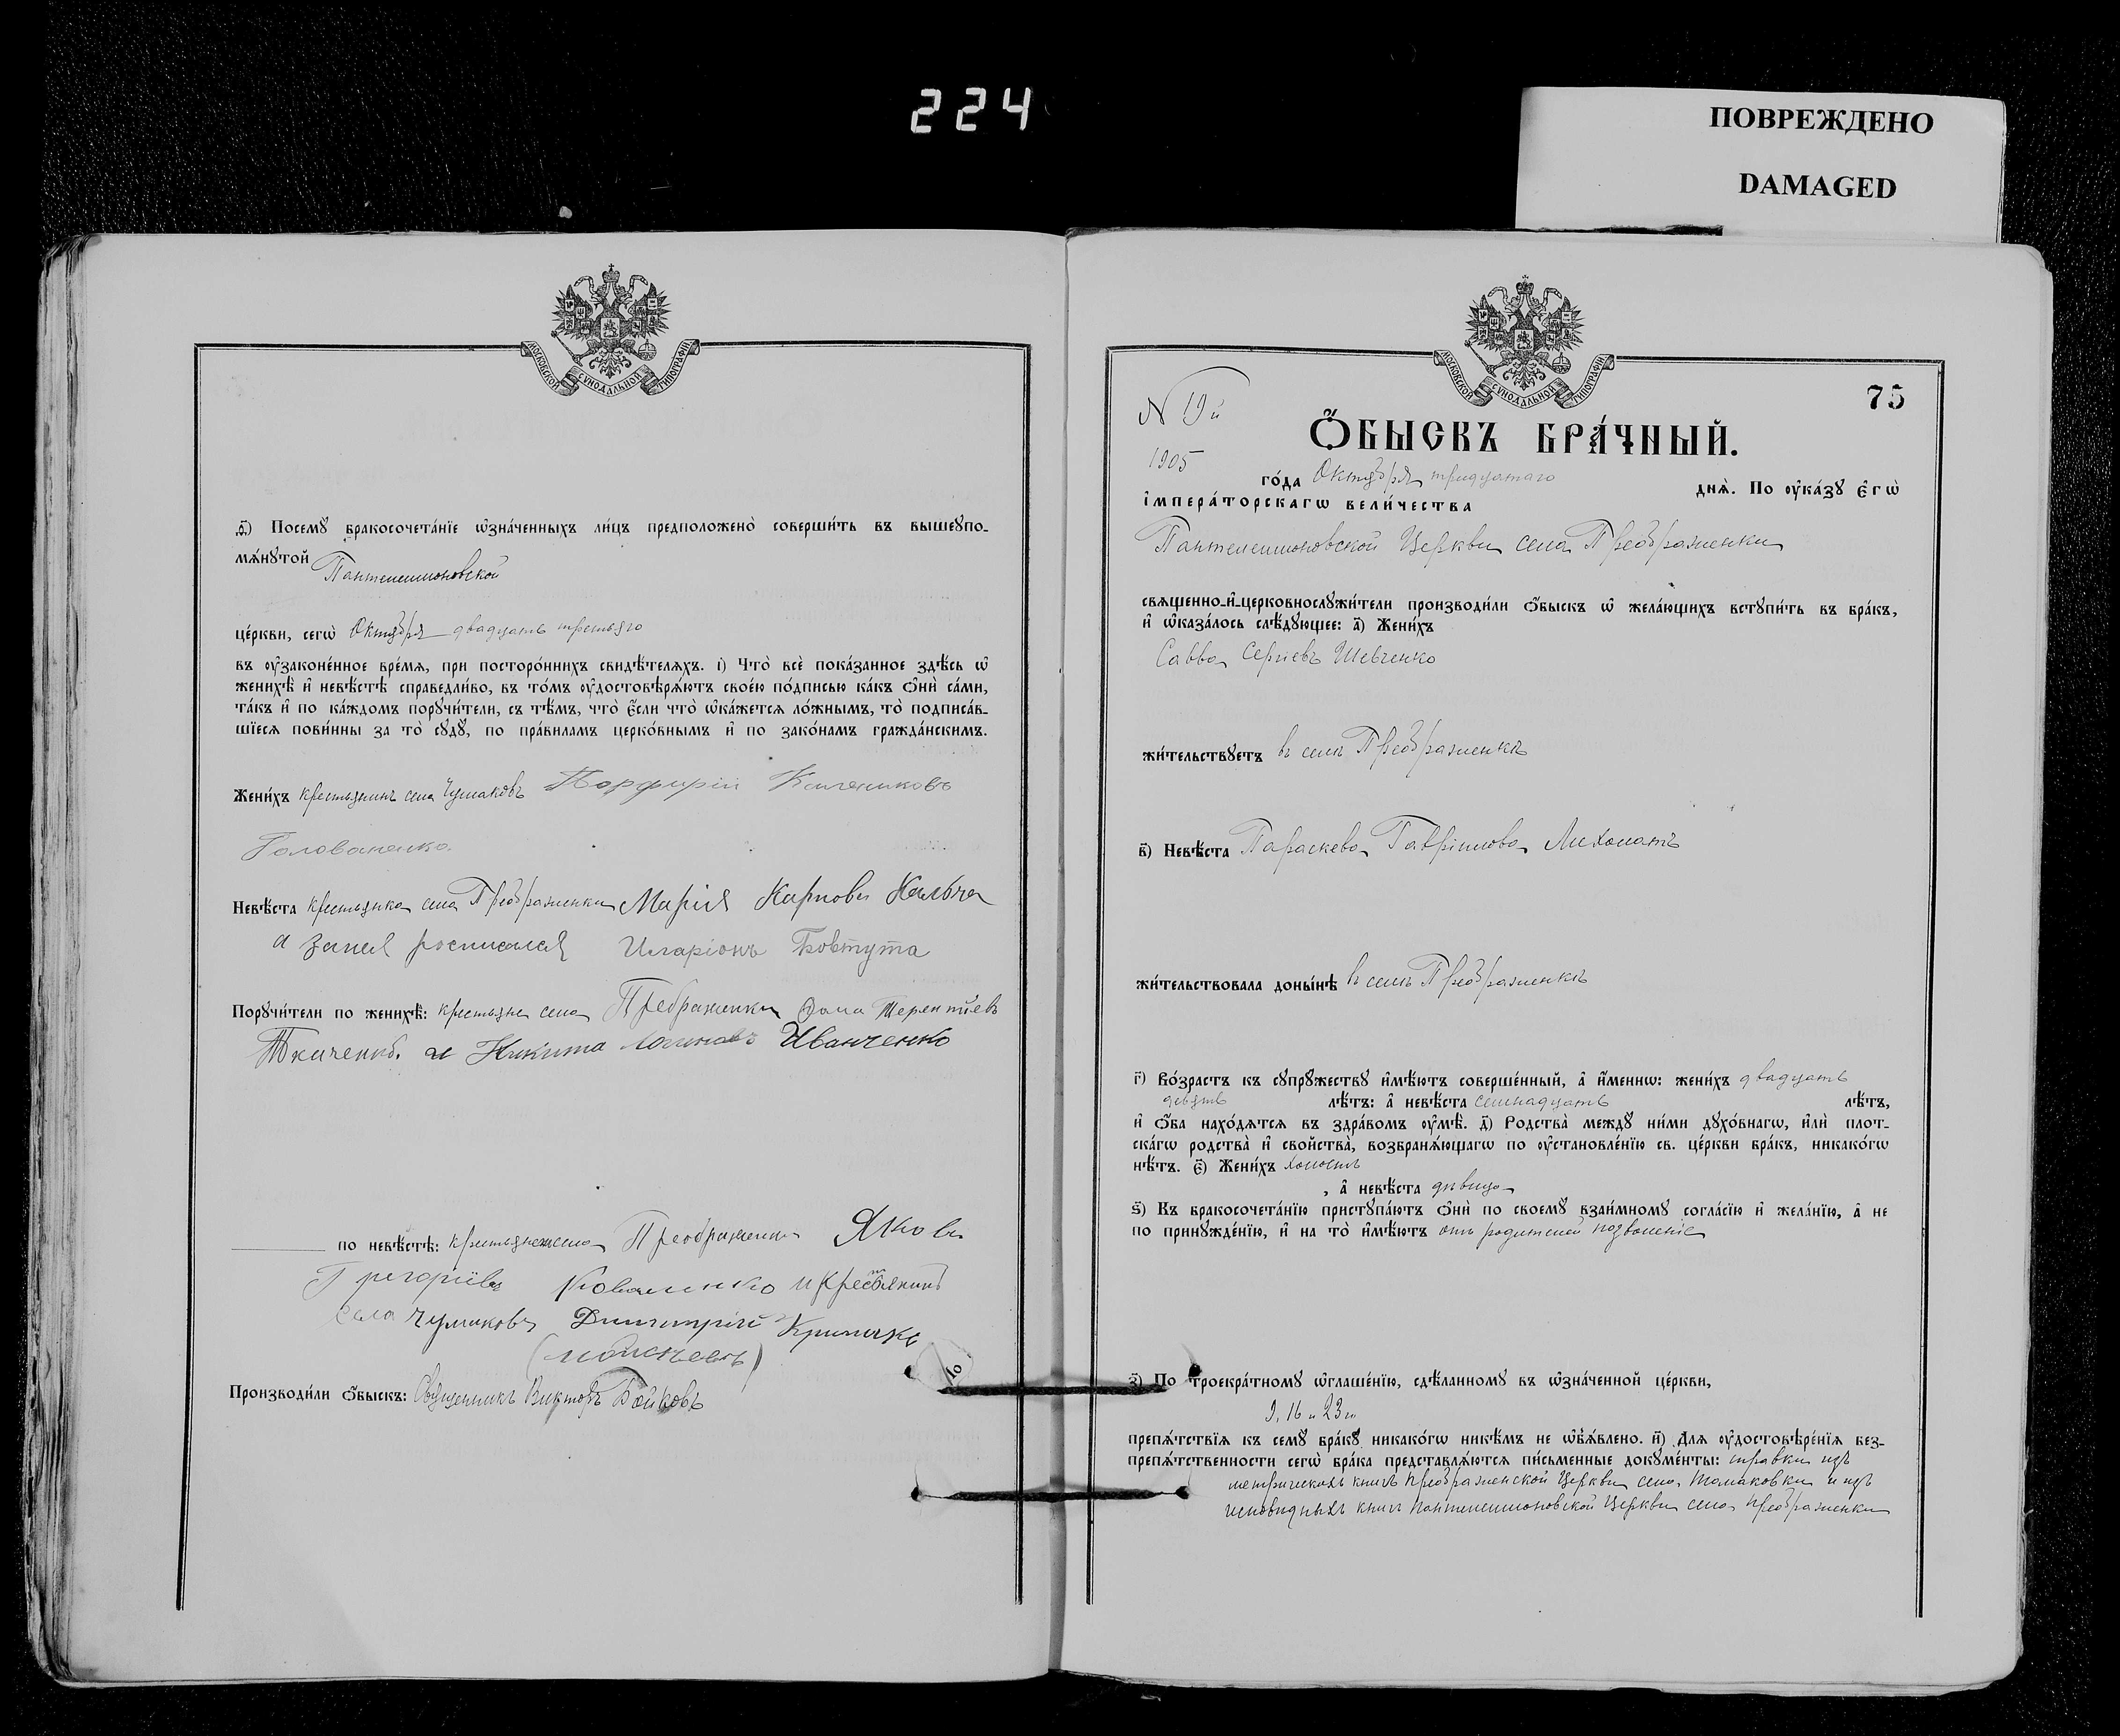 224
ПОВРЕЖДЕНО
DAMAGED
МОСКОВСКОЙ СѴНОДАЛЬНОЙ ТИПОГРАФІИ
ѳ҃) Посемꙋ бракосочета́нїе ѡ҆зна́ченныхъ ли́цъ предположено̀ соверши́ть въ вышеꙋпо-
мѧ́нꙋтой Пантелеимоновской
це́ркви, сегѡ̀ Октября двадцать третьяго
въ ᲂу҆законе́нное вре́мѧ, при посторо́ннихъ свидѣ́телѧхъ. і҃) Что̀ всѐ пока́занное здѣ́сь ѡ҆
женихѣ̀ и҆ невѣ́стѣ справедли́во, въ то́мъ ᲂу҆достовѣрѧ́ютъ свое́ю по́дписью ка́къ ѻ҆нѝ са́ми,
та́къ и҆ по ка́ждомъ порꙋчи́тели, съ тѣ́мъ, что̀ є҆́сли что̀ ѡ҆ка́жетсѧ ло́жнымъ, то̀ подписа́в-
шїесѧ пови́нны за то̀ сꙋдꙋ̀, по пра́виламъ церко́внымъ и҆ по зако́намъ гражда́нскимъ.
Жени́хъ крестьянинъ села Чумаковъ Порфирій Калениковъ
Голованенко
Невѣ́ста крестьянка села Преображенки Марія Карпова Кальча
а занея росписался Иларіонъ Бовтута
Порꙋчи́тели по женихѣ̀: крестьяне села Преображенки Фома Терентіевъ
Ткаченко и Никита Иванченко
по невѣ́стѣ: крестьяне села Преображенки Яковъ
Григоріевъ Коваленко и крестьянинъ
села Чумаковъ Димитрій
(Моисеевъ)
Производи́ли ѻ҆́быскъ: Священникъ Викторъ Бойковъ
МОСКОВСКОЙ СѴНОДАЛЬНОЙ ТИПОГРАФІИ
75
N 19й
Ѻ҆́БЫСКЪ БРА́ЧНЫЙ.
1905 го́да Октября тридцатаго днѧ̀. По ᲂу҆ка́зꙋ є҆гѡ̀
і҆мпера́торскагѡ вели́чества
Пантелеимоновской Церкви села Преображенки
свѧщенно-и҆-церковнослꙋжи́тели производи́ли ѻ҆́быскъ ѡ҆ жела́ющихъ встꙋпи́ть въ бра́къ,
и҆ ѡ҆каза́лось слѣ́дꙋющее: а҃) Жени́хъ
Савва Сергіевъ Шевченко
жи́тельствꙋетъ въ селѣ Преображенкѣ
в҃) Невѣ́ста Параскева Гавріилова Лихолатъ
жи́тельствовала доны́нѣ въ селѣ Преображенкѣ
г҃) Во́зрастъ къ сꙋпрꙋжествꙋ и҆мѣ́ютъ соверше́нный, а҆ и҆́меннѡ: жени́хъ двадцать
девять лѣ́тъ: а҆ невѣ́ста семнадцать лѣ́тъ,
и҆ ѻ҆́ба нахо́дѧтсѧ въ здра́вомъ ᲂу҆мѣ̀. д҃) Родства̀ междꙋ ни́ми дꙋхо́внагѡ, и҆лѝ плот-
ска́гѡ родства̀ и҆ свойства̀, возбранѧ́ющагѡ по ᲂу҆становле́нїю св. це́ркви бра́къ, никако́гѡ
нѣ́тъ. є҃) Жени́хъ холостъ
, а҆ невѣ́ста дѣвица
ѕ҃) Къ бракосочета́нїю пристꙋпа́ютъ ѻ҆нѝ по своемꙋ̀ взаи́мномꙋ согла́сїю и҆ жела́нїю, а҆ не
по принꙋжде́нїю, и҆ на то̀ и҆мѣ́ютъ отъ родителей позволеніе
з҃) По троекра́тномꙋ ѡ҆глаше́нїю, сдѣ́ланномꙋ въ ѡ҆зна́ченной це́ркви,
9, 16 и 23го
препѧ́тствїѧ къ семꙋ̀ бра́кꙋ никако́гѡ никѣ́мъ не ѡ҆б̾ѧ́влено. и҃) Длѧ ᲂу҆достовѣре́нїѧ без-
препѧ́тственности сегѡ̀ бра́ка представлѧ́ютсѧ пи́сьменные докꙋме́нты: справки изъ
метрическихъ книгъ Преображенской Церкви села Томаковки и изъ
исповѣдныхъ книгъ Пантелеимоновской Церкви села Преображенки